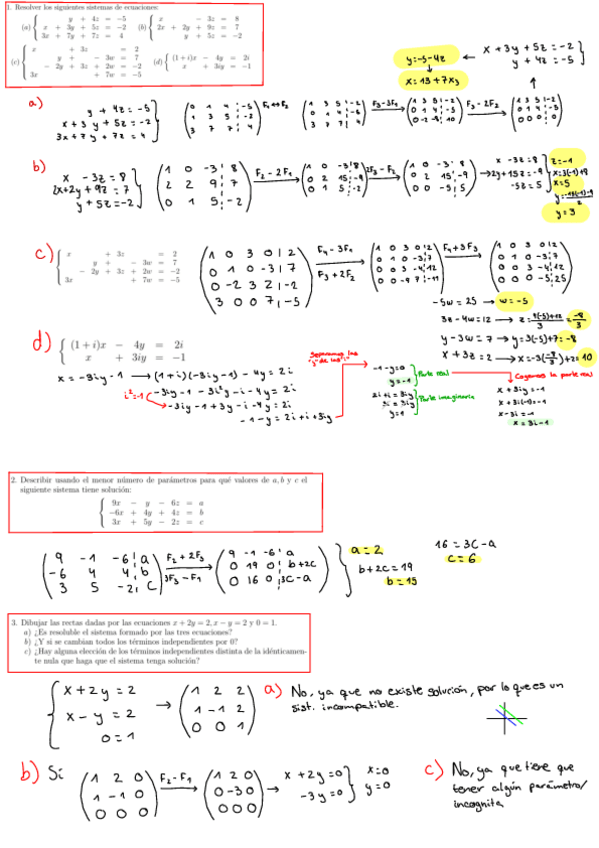 1. Resolver los siguientes sistemas de ecuaciones:
(a) { y + 4z = −5
x + 3y + 5z = −2
3x + 7y + 7z = 4
(b) { x − 3z = 8
2x + 2y + 9z = 7
y + 5z = −2
(c) { x + 3z = 2
y + − 3w = 7
− 2y + 3z + 2w = −2
3x + 7w = −5
(d) { (1+i)x − 4y = 2i
x + 3iy = −1
x + 3y + 5z = -2
y + 4z = -5
y = -5 - 4z
x = 13 + 7x3
a)
y + 4z = -5
x + 3y + 5z = -2
3x + 7y + 7z = 4
F1↔F2
F3-3F1
F3-2F2
b)
x - 3z = 8
2x + 2y + 9z = 7
y + 5z = -2
1 0 -3 | 8
2 2 9 | 7
0 1 5 | -2
F2 - 2F1
1 0 -3 | 8
0 2 15 | -9
0 1 5 | -2
2F3 - F2
1 0 -3 | 8
0 2 15 | -9
0 0 -5 | 5
x - 3z = 8
2y + 15z = -9
-5z = 5
z = -1
x = 3(-1) + 8
x = 5
y = 3
c)
x + 3z = 2
y + − 3w = 7
− 2y + 3z + 2w = −2
3x + 7w = −5
1 0 3 0 | 2
0 1 0 -3 | 7
0 -2 3 2 | -2
3 0 0 7 | -5
F4 - 3F1
F3 + 2F2
1 0 3 0 | 2
0 1 0 -3 | 7
0 0 3 -4 | 12
0 0 -9 7 | -11
F4 + 3F3
1 0 3 0 | 2
0 1 0 -3 | 7
0 0 3 -4 | 12
0 0 0 -5 | 25
-5w = 25 → w = -5
3z - 4w = 12 → z =
y - 3w = 7 → y = 3(-5) + 7 = -8
x + 3z = 2 → x = -3(-8/3) + 2 = 10
d)
{ (1+i)x − 4y = 2i
x + 3iy = −1
x = -3iy - 1 → (1+i)(-3iy-1) - 4y = 2i
i² = -1
-3iy - 1 - 3i²y - i - 4y = 2i
-3iy - 1 + 3y - i - 4y = 2i
-1 - y = 2i + i + 3iy
Separamos las
-1 - y = 0
y = -1
Parte real
2i + i = 3iy
3i = 3iy
y = 1
Parte imaginaria
Cogemos la parte real
x + 3iy = -1
x + 3i(-1) = -1
x - 3i = -1
x = 3i - 1
2. Describir usando el menor número de parámetros para qué valores de a, b y c el
siguiente sistema tiene solución:
{ 9x − y − 6z = a
−6x + 4y + 4z = b
3x + 5y − 2z = c
9 -1 -6 | a
-6 4 4 | b
3 5 -2 | c
F2 + 2F3
3F3 - F1
9 -1 -6 | a
0 19 0 | b+2c
0 16 0 | 3c-a
a = 2
b + 2c = 19
b = 15
16 = 3c - a
c = 6
3. Dibujar las rectas dadas por las ecuaciones x + 2y = 2, x − y = 2 y 0 = 1.
a) ¿Es resoluble el sistema formado por las tres ecuaciones?
b) ¿Y si se cambian todos los términos independientes por 0?
c) ¿Hay alguna elección de los términos independientes distinta de la idénticamen-
te nula que haga que el sistema tenga solución?
x + 2y = 2
x - y = 2
0 = 1
1 2 2
1 -1 2
0 0 1
a) No, ya que no existe solución, por lo que es un
sist. incompatible.
b) Sí
1 2 0
1 -1 0
0 0 0
F2 - F1
1 2 0
0 -3 0
0 0 0
x + 2y = 0
-3y = 0
x = 0
y = 0
c) No, ya que tiene que
tener algún parámetro/
incognita